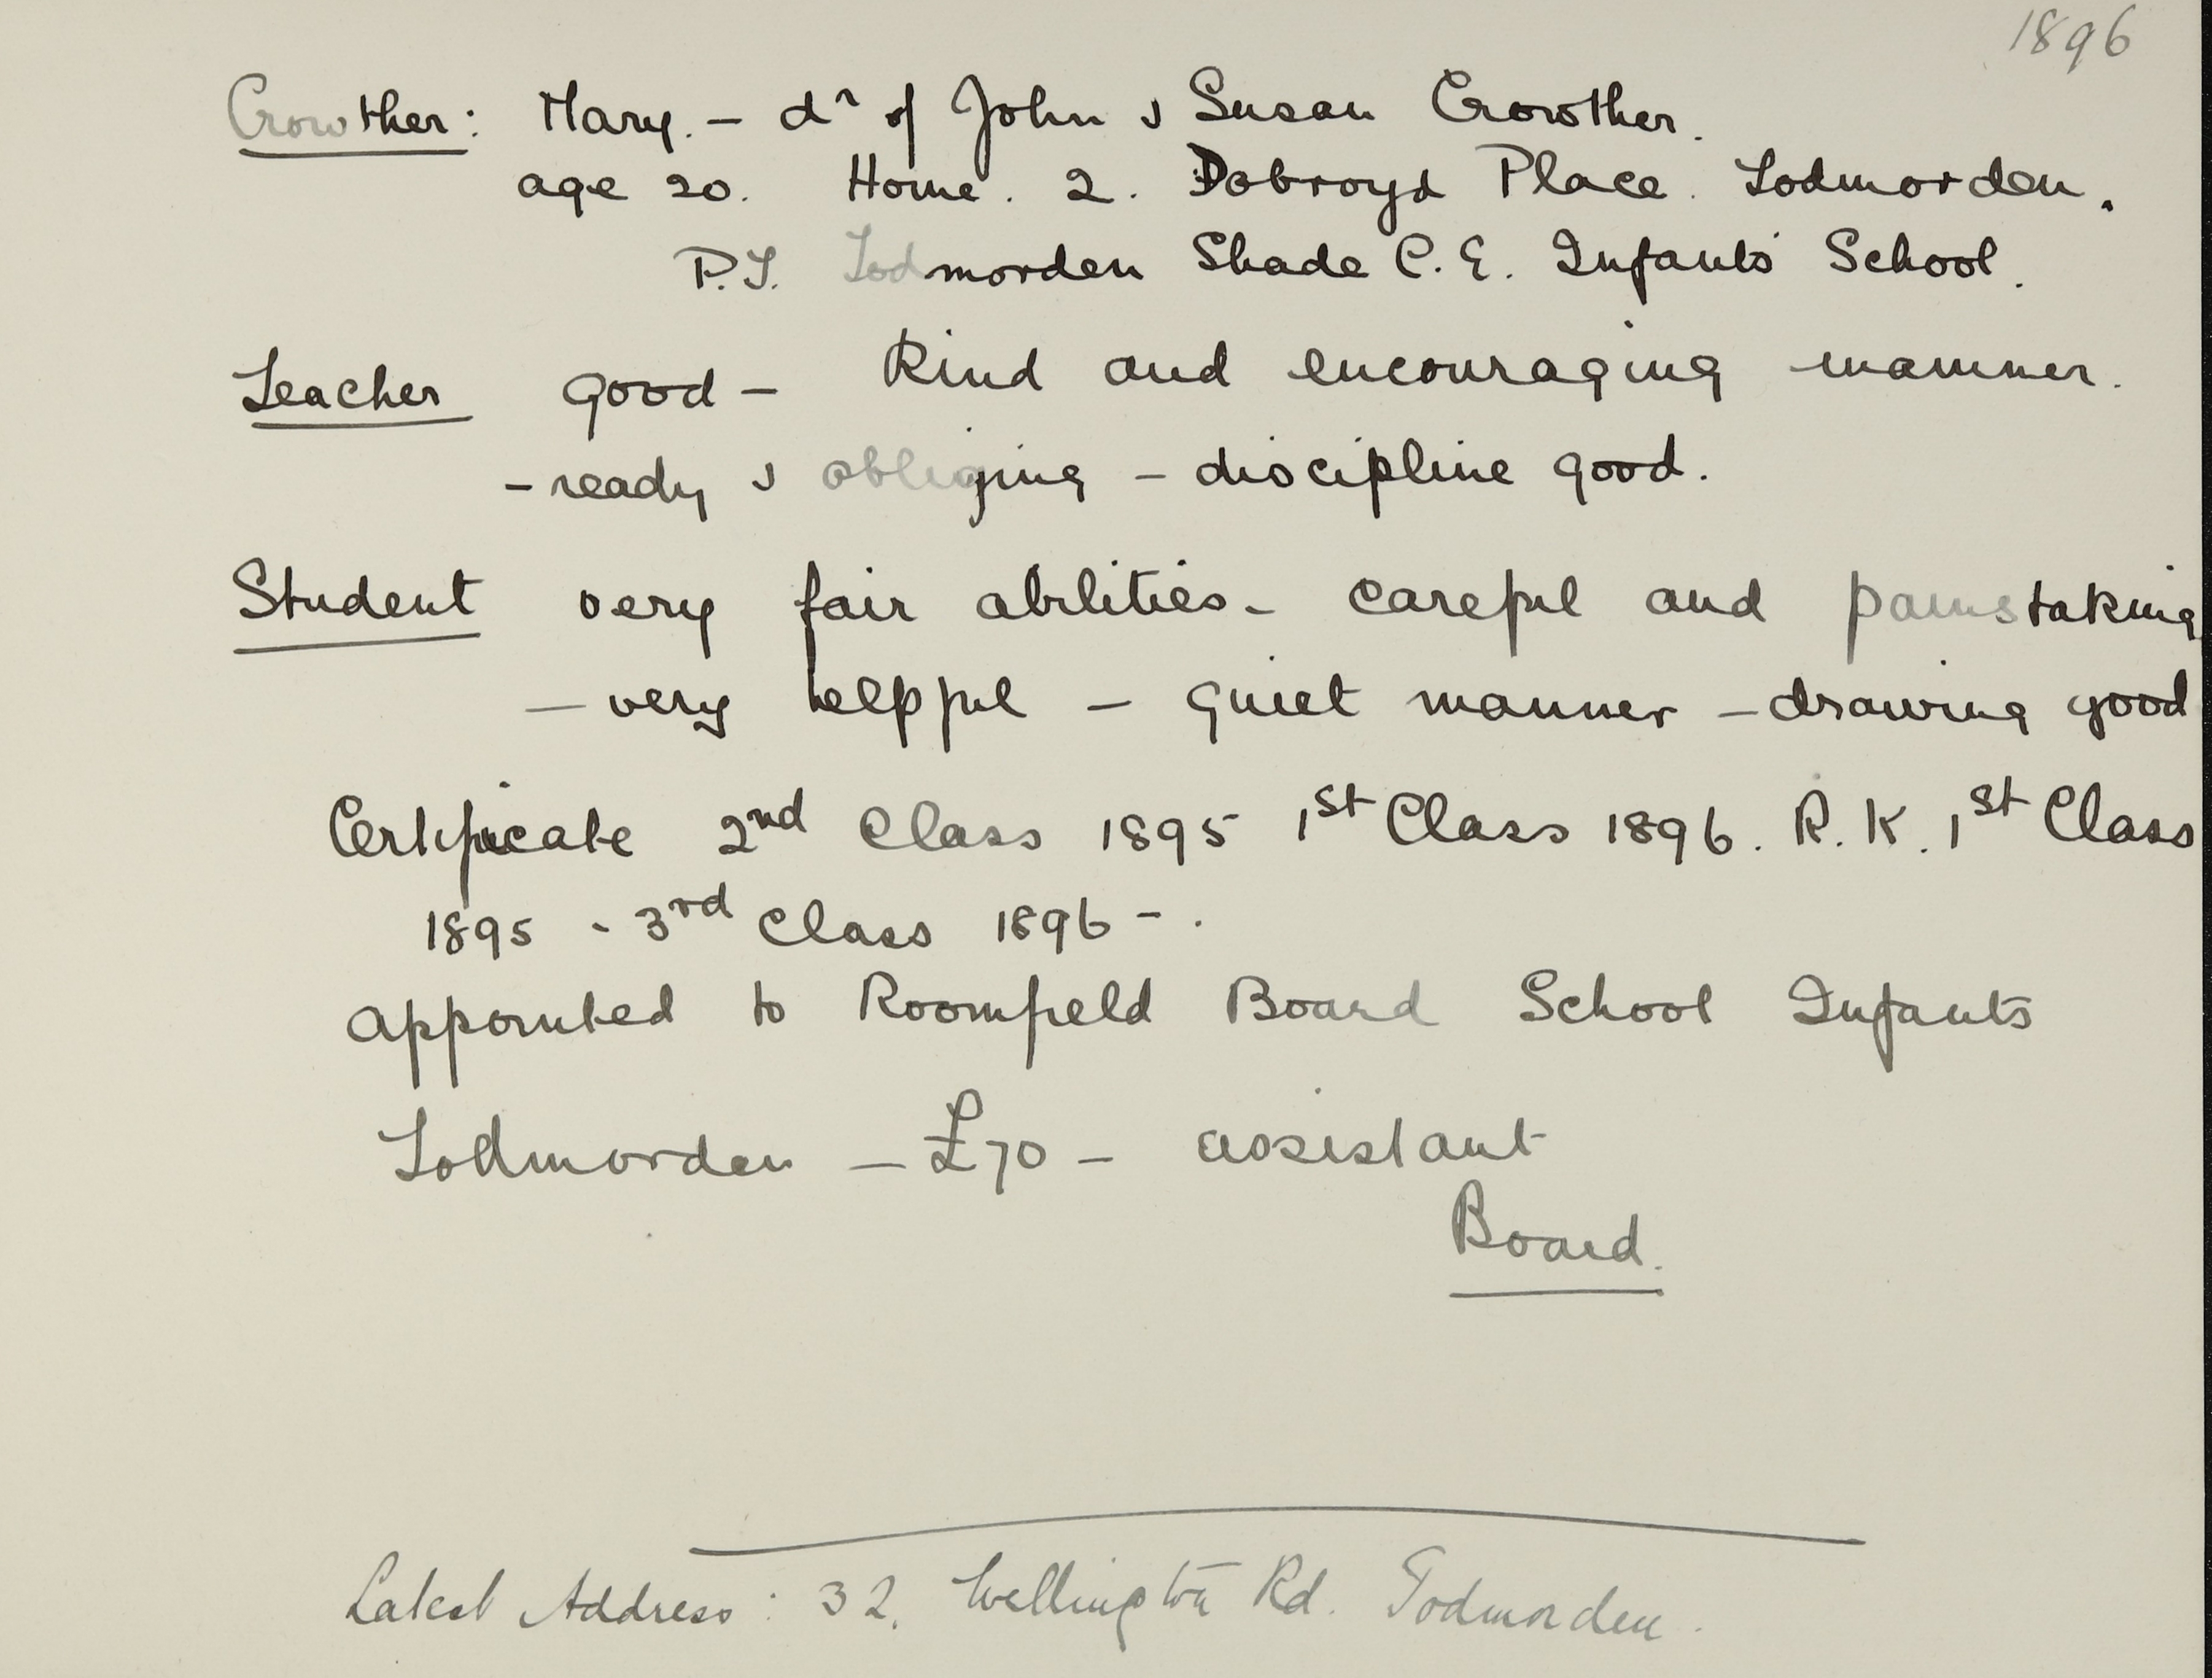 1896
Crowther: Mary. - dr of John & Susan Crowther.
age 20. Home. 2. Dobroyd Place. Todmorden.
P.T. Todmorden Shade C.E. Infants' School.
Teacher good - Kind and encouraging manner.
- ready & obliging - discipline good.
Student very fair abilities - careful and painstaking
- very helpful - quiet manner - drawing good
Certificate 2nd Class 1895 1st Class 1896. R.K. 1st Class
1895 - 3rd Class 1896 - .
appointed to Roomfield Board School Infants
Todmorden - £70 - assistant
Board.
Latest Address: 32, Wellington Rd. Todmorden.